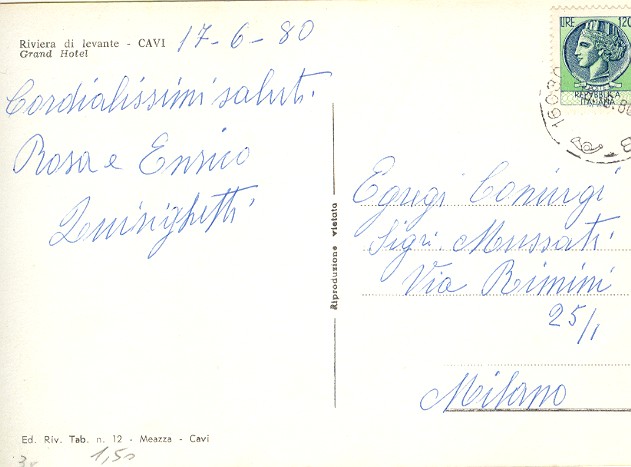 Riviera di levante - CAVI
Grand Hotel
17-6-80
Cordialissimi saluti.
Rosa e Enrico
Luinighetti
Riproduzione vietata
LIRE 120
REPVBBLICA
ITALIANA
16030
Egregi Coniugi
Sigri. Mussati
Via Rimini
25/1
Milano
Ed. Riv. Tab. n. 12 - Meazza - Cavi
1,50